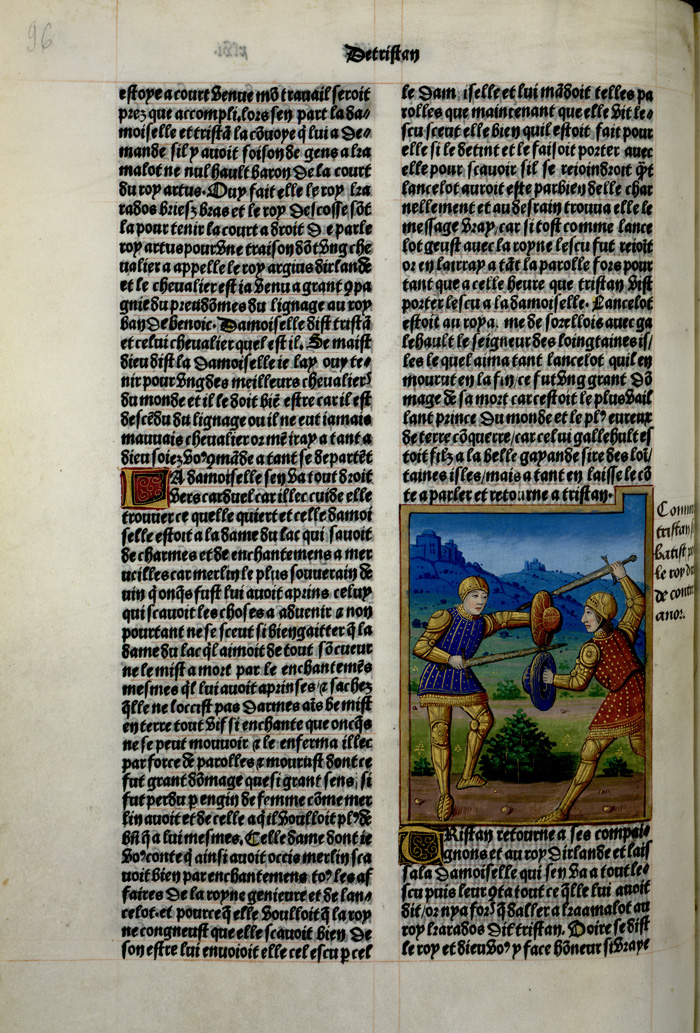 96
De tristan
estoye a court venue mõ trauail seroit
prez que accompli. lors sen part la da/
moiselle et tristã la cõuoye q̃ lui a de/
mande sil y auoit foison de gens a lra
malot ne nul hault baron de la court
du roy artus. Ouy fait elle le roy lra
rados briefz bras et le roy descosse sõt
la pour tenir la court a droit De par le
roy artus pour vne traison dõt vng che
ualier a appelle le roy argius dirlãde
et le cheualier est ia venu a grant ꝯpa
gnie du preudõmes du lignage au roy
ban de benoic. Damoiselle dist tristã
et celui cheualier quel est il. Se maist
dieu dist la damoiselle ie lay ouy te/
nir pour vng des meilleurs cheualiers
du monde et il le doit biẽ estre car il est
descẽdu du lignage ou il ne eut iamais
mauuais cheualier or mẽ iray a tant a
dieu soiez voꝰ ꝯmãde a tant se departẽt
LA damoiselle sen va tout droit
vers carduel car illec cuide elle
trouuer ce quelle quiert et celle damoi
selle estoit a la dame du lac qui sauoit
de charmes et de enchantemens a mer
ueilles car merlin le plus souuerain de
uin q̃ onq̃s fust lui auoit aprins celuy
qui scauoit les choses a aduenir ⁊ non
pourtant ne se sceut si bien gaitter q̃ la
dame du lac q̃l aimoit de tout sõ cueur
ne le mist a mort par le enchantemẽs
mesmes q̃l lui auoit aprinses ⁊ sachez
q̃lle ne loccist pas darmes ais le mist
en terre tout vif si enchante que onc̃qs
ne se peut mouuoir ⁊ le enferma illec
par force de parolles ⁊ mourust dont ce
fut grant dõmage que si grant sens, si
fut perdu p engin de femme cõme mer
lin auoit et de celle a q̃ il vouloit plꝰ de
biẽ q̃ a lui mesmes. Celle dame dont ie
voꝰ conte q̃ ainsi auoit occis merlin sca
uoit bien par enchantemens toꝰ les af
faires de la royne genieure et de lan/
celot. et pource q̃ elle vouloit q̃ la roy
ne congneust que elle scauoit bien de
son estre lui enuoioit elle cel escu p cel
le dam iselle et lui mãdoit telles pa
rolles que maintenant que elle vit le/
scu sceut elle bien quil estoit fait pour
elle si le detint et le faisoit porter auec
elle pour scauoir sil se reioindroit q̃t
lancelot auroit este par bien delle char
nellement et au desrain trouua elle le
message vray, car si tost comme lance
lot geust auec la royne lescu fut reioĩt
or en lairray a tãt la parolle fors pour
tant que a celle heure que tristan vist
porter lescu a la damoiselle. Lancelot
estoit au roya me de sorellois auec ga
lehault le seigneur des loingtaines is/
les le quel aima tant lancelot quil en
mourut en la fin/ ce fut vng grant dõ
mage de sa mort car cestoit le plus vail
lant prince du monde et le plꝰ eureux
de terre cõquerre/car celui gallehult es
toit filz a la belle gayande sire des loĩ/
taines isles/mais a tant en laisse le cõ
te a parler et retourne a tristan.
Comm
tristan
batist
le roy
de contr
anor.
TRistan retourne a ses compai/
gnons et au roy dirlande et lais
sa la damoiselle qui sen va a tout le/
scu puis leur ꝯta tout ce q̃lle lui auoit
dit/or ny a fors q̃ daller a kraamalot au
roy lrarados dit tristan. Voire se dist
le roy et dieu voꝰ y face hõneur si vraye